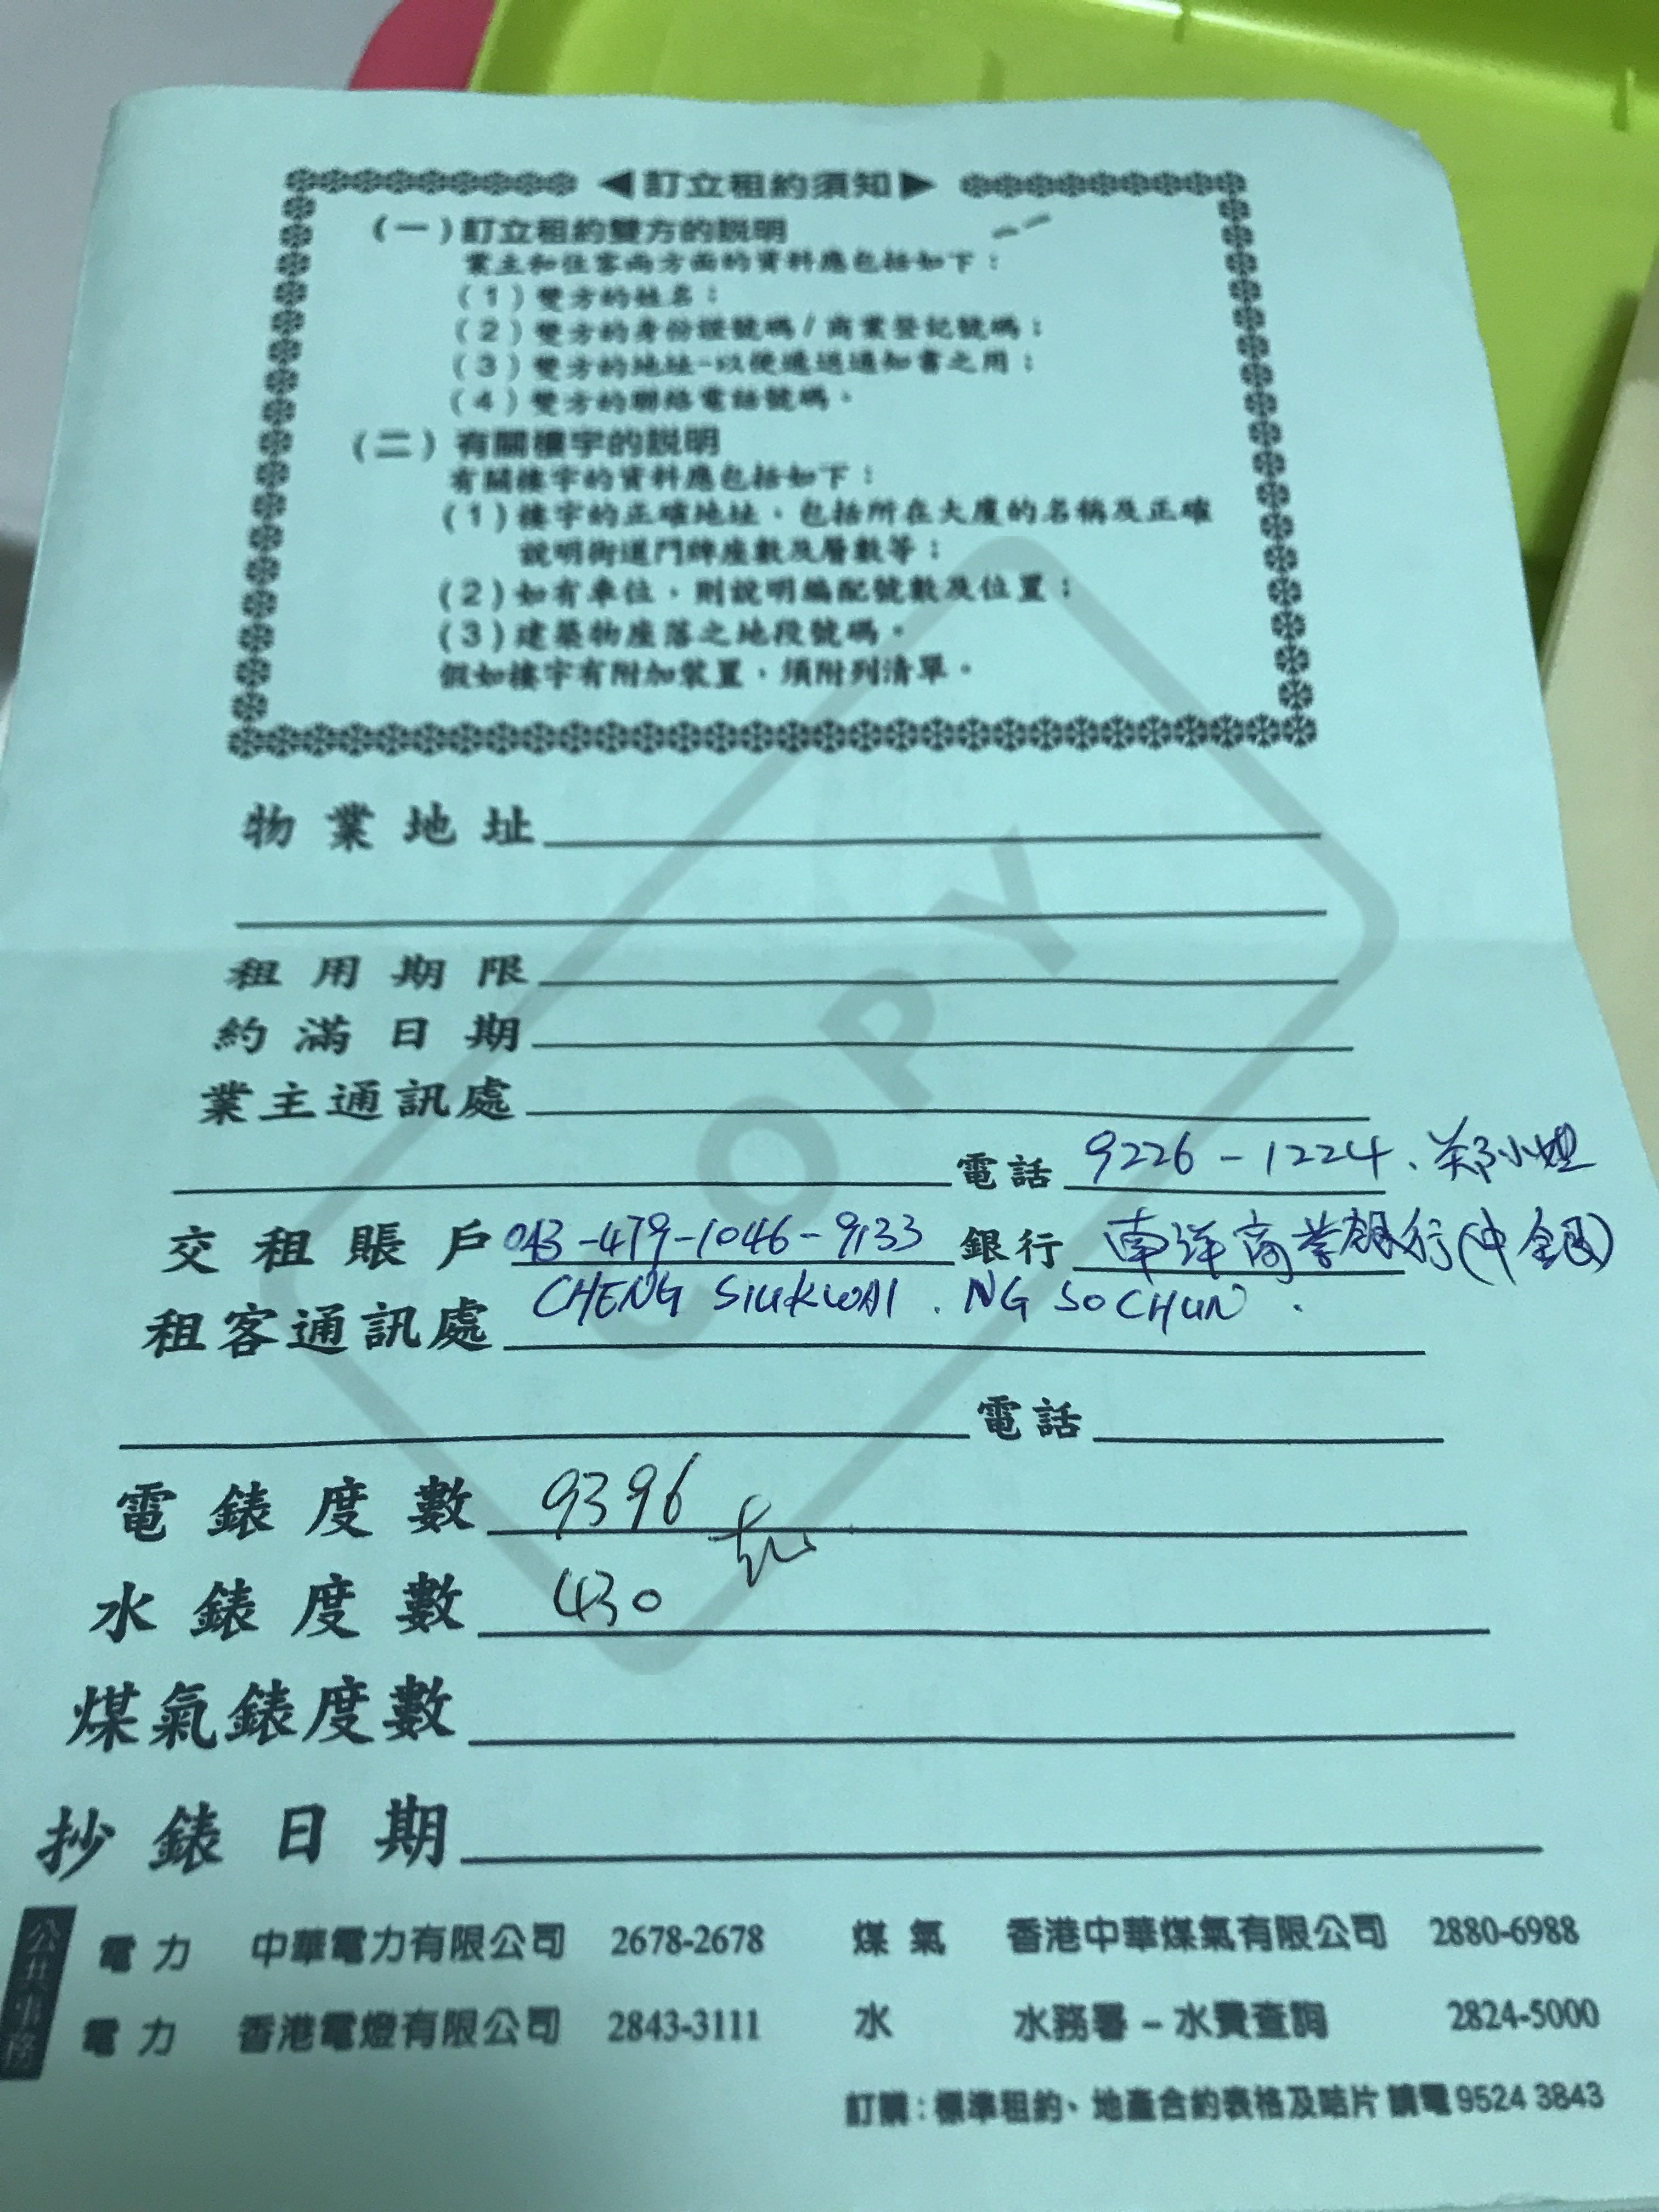 ◀訂立租約須知▶
(一)訂立租約雙方的說明
業主和住客兩方面的資料應包括如下：
(1)雙方的姓名；
(2)雙方的身份證號碼/商業登記號碼；
(3)雙方的地址-以便遞送通知書之用；
(4)雙方的聯絡電話號碼。
(二)有關樓宇的說明
有關樓宇的資料應包括如下：
(1)樓宇的正確地址，包括所在大廈的名稱及正確
說明街道門牌座數及層數等；
(2)如有車位，則說明編配號數及位置；
(3)建築物座落之地段號碼。
假如樓宇有附加裝置，須附列清單。
COPY
物業地址
租用期限
約滿日期
業主通訊處
電話 9226-1224、郑小姐
交租賬戶 043-479-1046-9133 銀行 東洋商業銀行(中銀)
CHENG SIUKWAI . NG SO CHUN .
租客通訊處
電話
電錶度數 9396
水錶度數 430
煤氣錶度數
抄錶日期
公共事務
電力 中華電力有限公司 2678-2678 煤氣 香港中華煤氣有限公司 2880-6988
電力 香港電燈有限公司 2843-3111 水 水務署－水費查詢 2824-5000
訂購：標準租約、地產合約表格及咭片 請電 9524 3843